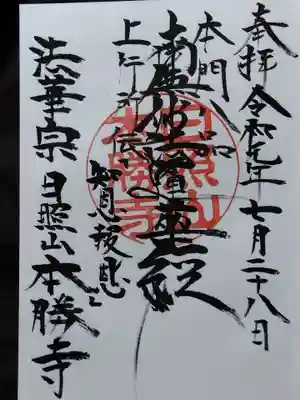 奉拝 令和元年七月二十八日
本門八品
上行所伝
南無妙法蓮華経
知恩報恩
法華宗 日照山 本勝寺
日照山本勝寺